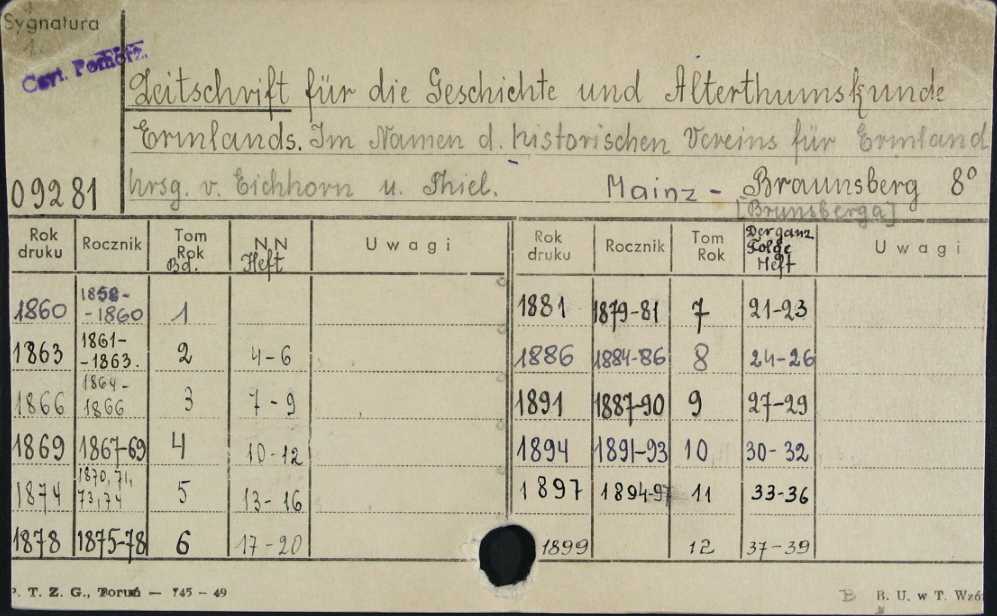 Sygnatura
Czyt. Pomorz.
Zeitschrift für die Geschichte und Alterthumskunde
Ermlands. Im Namen d. historischen Vereins für Ermland
09281 hrsg. v. Eichhorn u. Thiel. Mainz - Braunsberg 8°
[Brunsberga]
Rok druku Rocznik Tom Rok Bd. NN Heft Uwagi Rok druku Rocznik Tom Rok Der ganz Folge Heft Uwagi
1860 1858--1860 1 1881 1879-81 7 21-23
1863 1861--1863. 2 4-6 1886 1884-86 8 24-26
1866 1864-1866 3 7-9 1891 1887-90 9 27-29
1869 1867-69 4 10-12 1894 1891-93 10 30-32
1874 1870, 71, 73, 74 5 13-16 1897 1894-97 11 33-36
1878 1875-78 6 17-20 1899 12 37-39
P. T. Z. G., Toruń — 745 - 49 B B. U. w T. Wzór